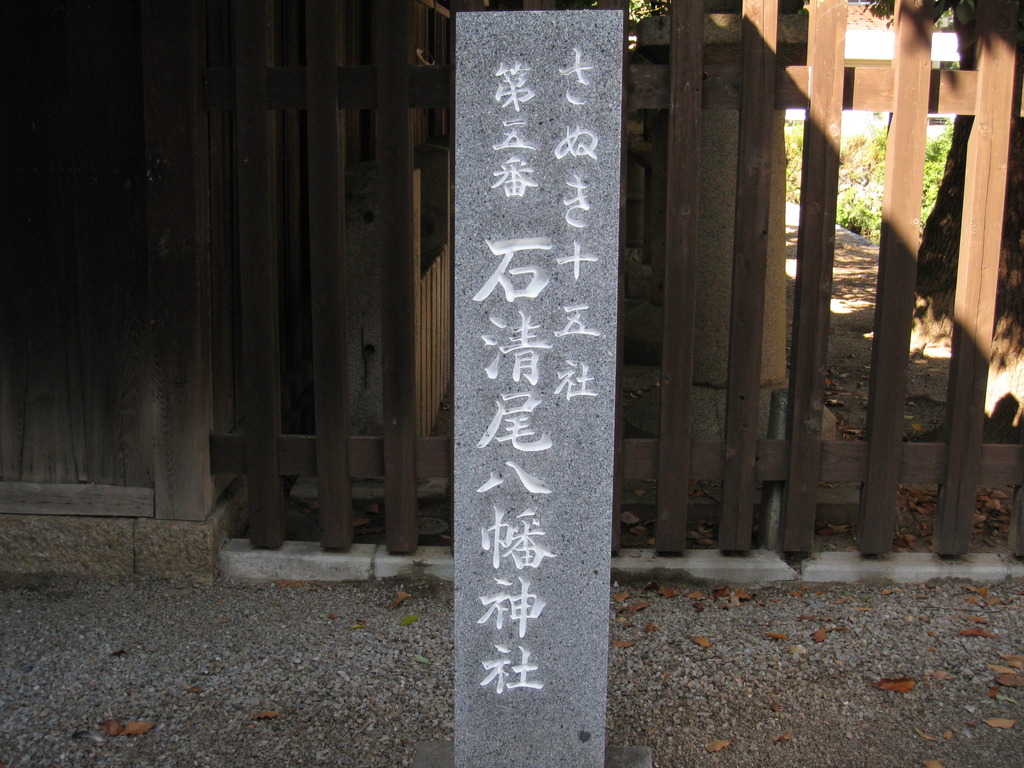 さぬき十五社
第五番 石清尾八幡神社